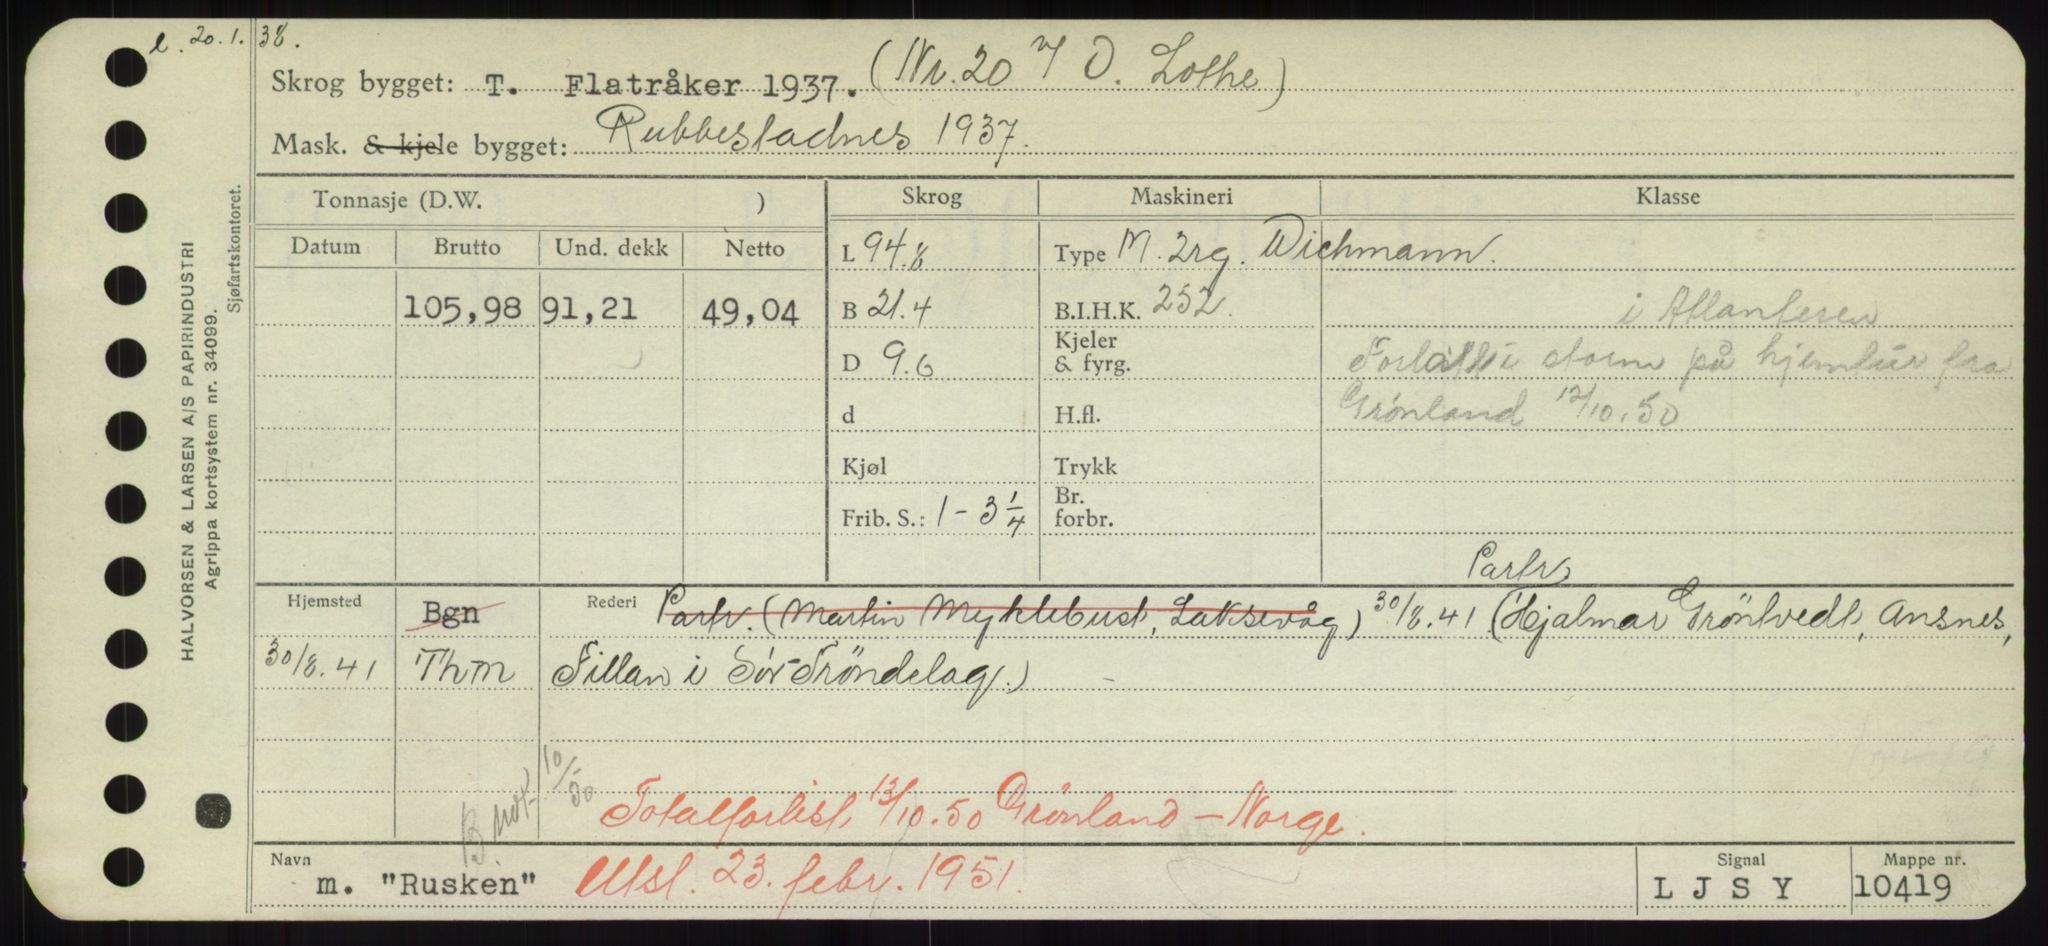 l. 20.1.38.
Skrog bygget: T. Flatråker 1937. (Nr. 20 v/ O. Lothe)
Mask. & kjele bygget: Rubbestadnes 1937.
Tonnasje (D.W. ) Skrog Maskineri Klasse
Datum Brutto Und. dekk Netto L 94.8 Type M. 2rg. Wichmann.
105,98 91,21 49,04 B 21.4 B.I.H.K. 252. i Atlanteren
D 9.6 Kjeler & fyrg. Forlatt i storm på hjemtur fra
d H.fl. Grönland 12/10.50
Kjøl Trykk
Frib. S.: 1 - 3 1/4 Br. forbr.
Partr.
Hjemsted Bgn Rederi Partr. (Martin Myklebust, Laksevåg) 30/8.41 (Hjalmar Gröntvedt, Ansnes,
30/8.41 Thm Fillan i Sör-Tröndelag.)
B. not. 10/50
Totalforlist 12/10.50 Grönland - Norge.
Navn m. "Rusken" Utsl. 23. febr. 1951. Signal L J S Y Mappe nr. 10419
HALVORSEN & LARSEN A/S PAPIRINDUSTRI
Agrippa kortsystem nr. 34099.
Sjøfartskontoret.